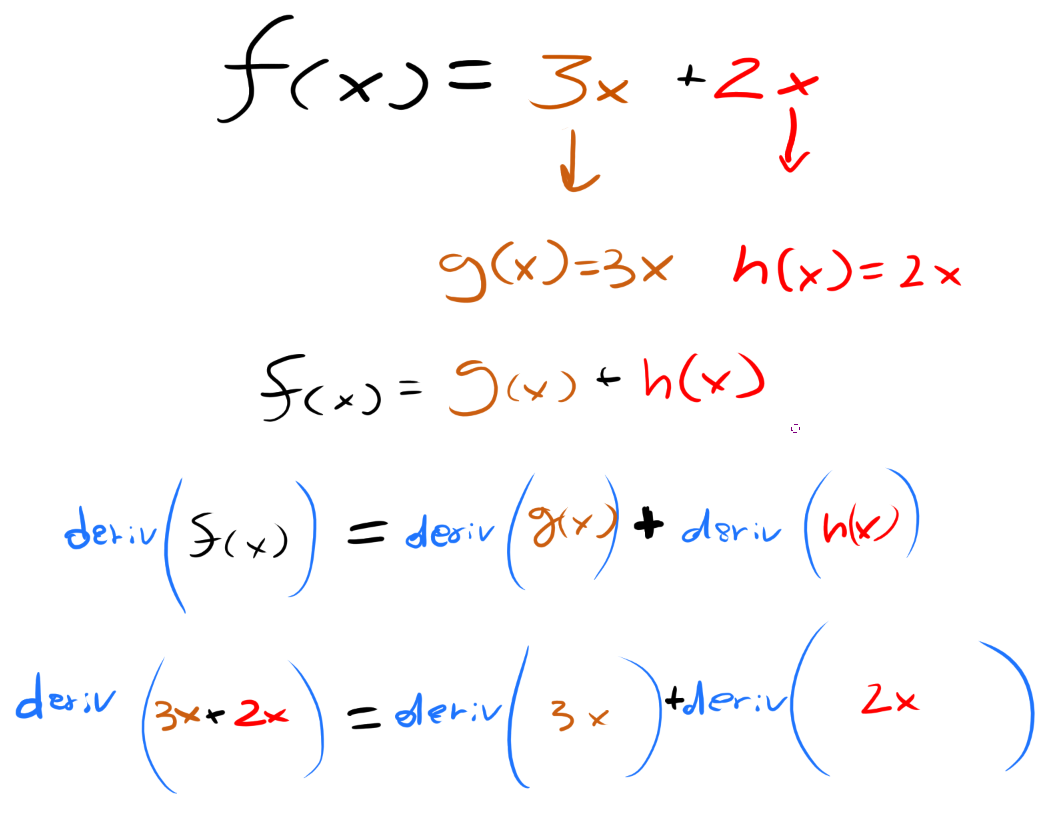 f(x) = 3x + 2x
g(x) = 3x h(x) = 2x
f(x) = g(x) + h(x)
deriv(f(x)) = deriv(g(x)) + deriv(h(x))
deriv(3x + 2x) = deriv(3x) + deriv(2x)